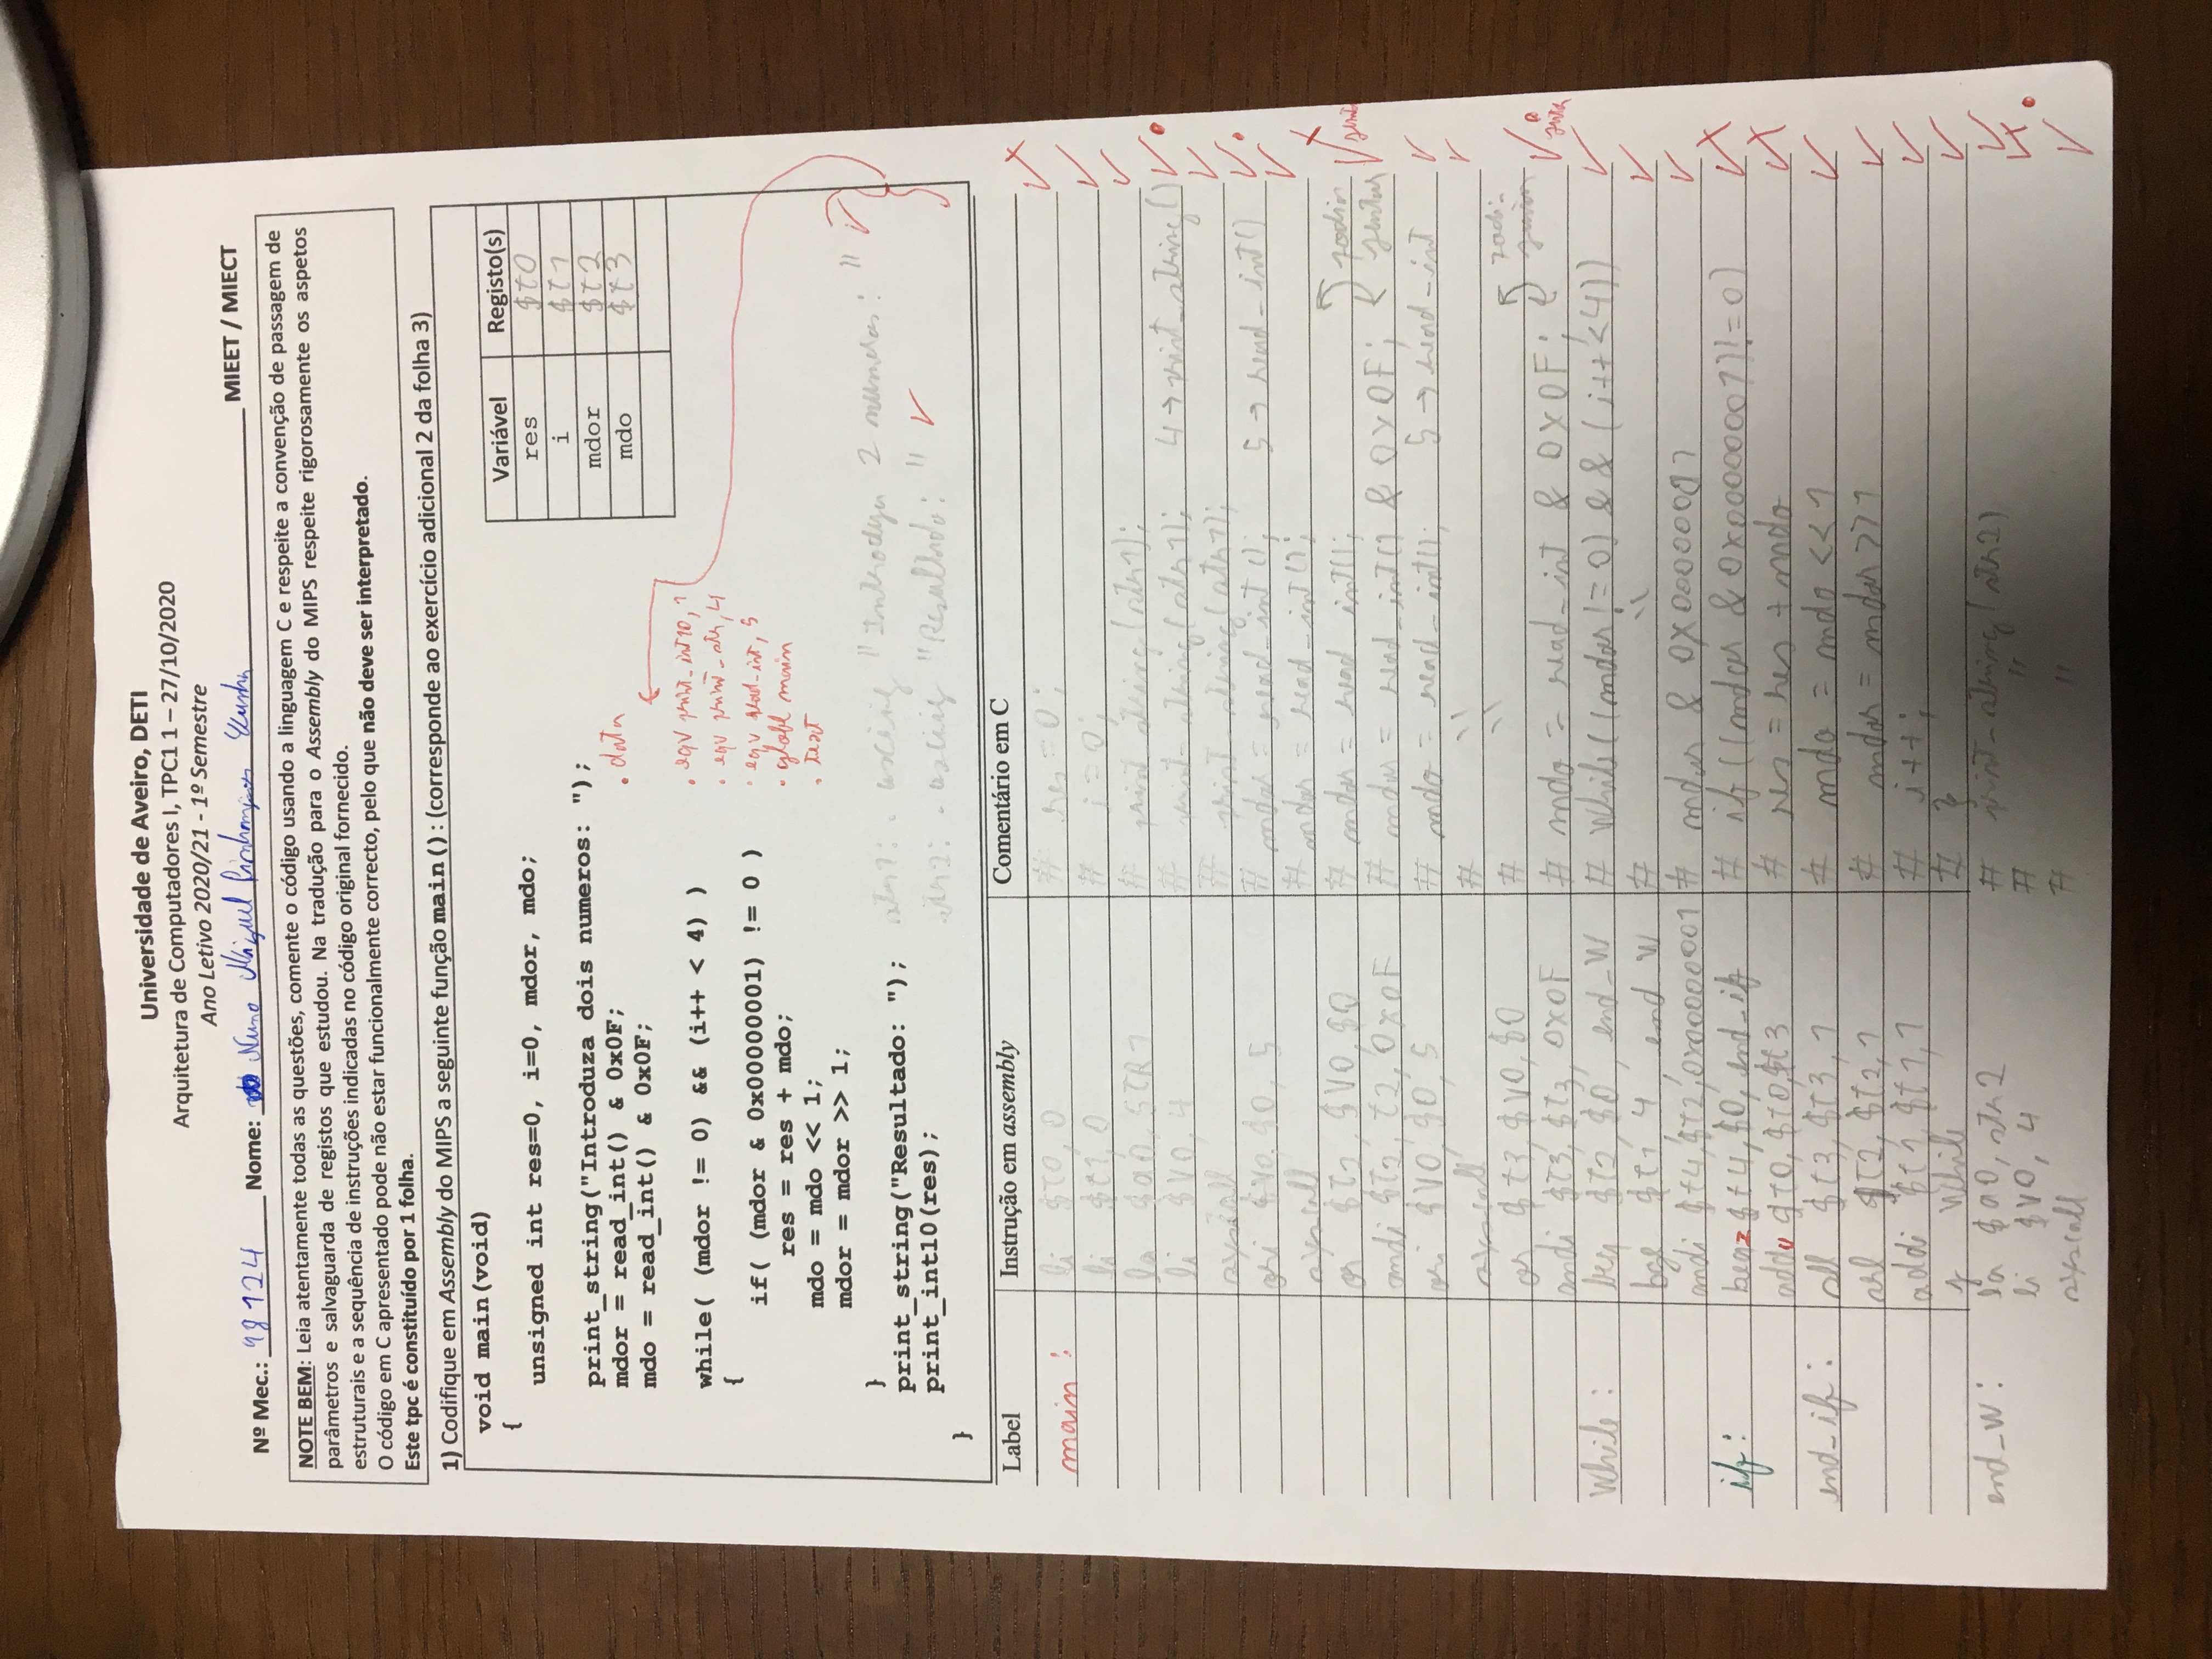 Universidade de Aveiro, DETI
Arquitetura de Computadores I, TPC1 1 – 27/10/2020
Ano Letivo 2020/21 - 1º Semestre
Nº Mec.: 98124 Nome: Nuno Miguel Cunha MIEET / MIECT
NOTE BEM: Leia atentamente todas as questões, comente o código usando a linguagem C e respeite a convenção de passagem de
parâmetros e salvaguarda de registos que estudou. Na tradução para o Assembly do MIPS respeite rigorosamente os aspetos
estruturais e a sequência de instruções indicadas no código original fornecido.
O código em C apresentado pode não estar funcionalmente correcto, pelo que não deve ser interpretado.
Este tpc é constituído por 1 folha.
1) Codifique em Assembly do MIPS a seguinte função main () : (corresponde ao exercício adicional 2 da folha 3)
void main(void)
{
unsigned int res=0, i=0, mdor, mdo;
print_string("Introduza dois numeros: ");
mdor = read_int() & 0x0F;
mdo = read_int() & 0x0F;
while( (mdor != 0) && (i++ < 4) )
{
if( (mdor & 0x00000001) != 0 )
res = res + mdo;
mdo = mdo << 1;
mdor = mdor >> 1;
}
print_string("Resultado: ");
print_int10(res);
}
Variável Registo(s)
res $t0
i $t1
mdor $t2
mdo $t3
. data
. eqv print_int10, 1
. eqv print_str, 4
. eqv read_int, 5
. globl main
. text
str1: . asciiz "Introduza 2 numeros: "
str2: . asciiz "Resultado: "
Label Instrução em assembly Comentário em C
main : li $t0, 0 # res = 0;
li $t1, 0 # i = 0;
la $a0, STR1 # print_string(str1);
li $v0, 4 # print_string(str1); 4 → print_string()
syscall # print_string(str1);
ori $v0, $0, 5 # mdor = read_int(); 5 → read_int()
syscall # mdor = read_int();
or $t2, $v0, $0 # mdor = read_int();
andi $t2, t2, 0x0F # mdor = read_int() & 0x0F; podia juntar
ori $v0, $0, 5 # mdo = read_int(); 5 → read_int
syscall # \\
or $t3, $v0, $0 # \\
andi $t3, $t3, 0x0F # mdo = read_int & 0x0F;
While : beq $t2, $0, end_W # While((mdor != 0) && (i++ < 4))
bge $t1, 4, end_W # \\
andi $t4, $t2, 0x00000001 # mdor & 0x00000001
if : beqz $t4, $0, end_if # if ((mdor & 0x00000001) != 0)
addu $t0, $t0, $t3 # res = res + mdo
end_if : sll $t3, $t3, 1 # mdo = mdo << 1
srl $t2, $t2, 1 # mdor = mdor >> 1
addi $t1, $t1, 1 # i++;
j While # }
end_W : la $a0, str2 # print_string(str2)
li $v0, 4 # "
syscall # "